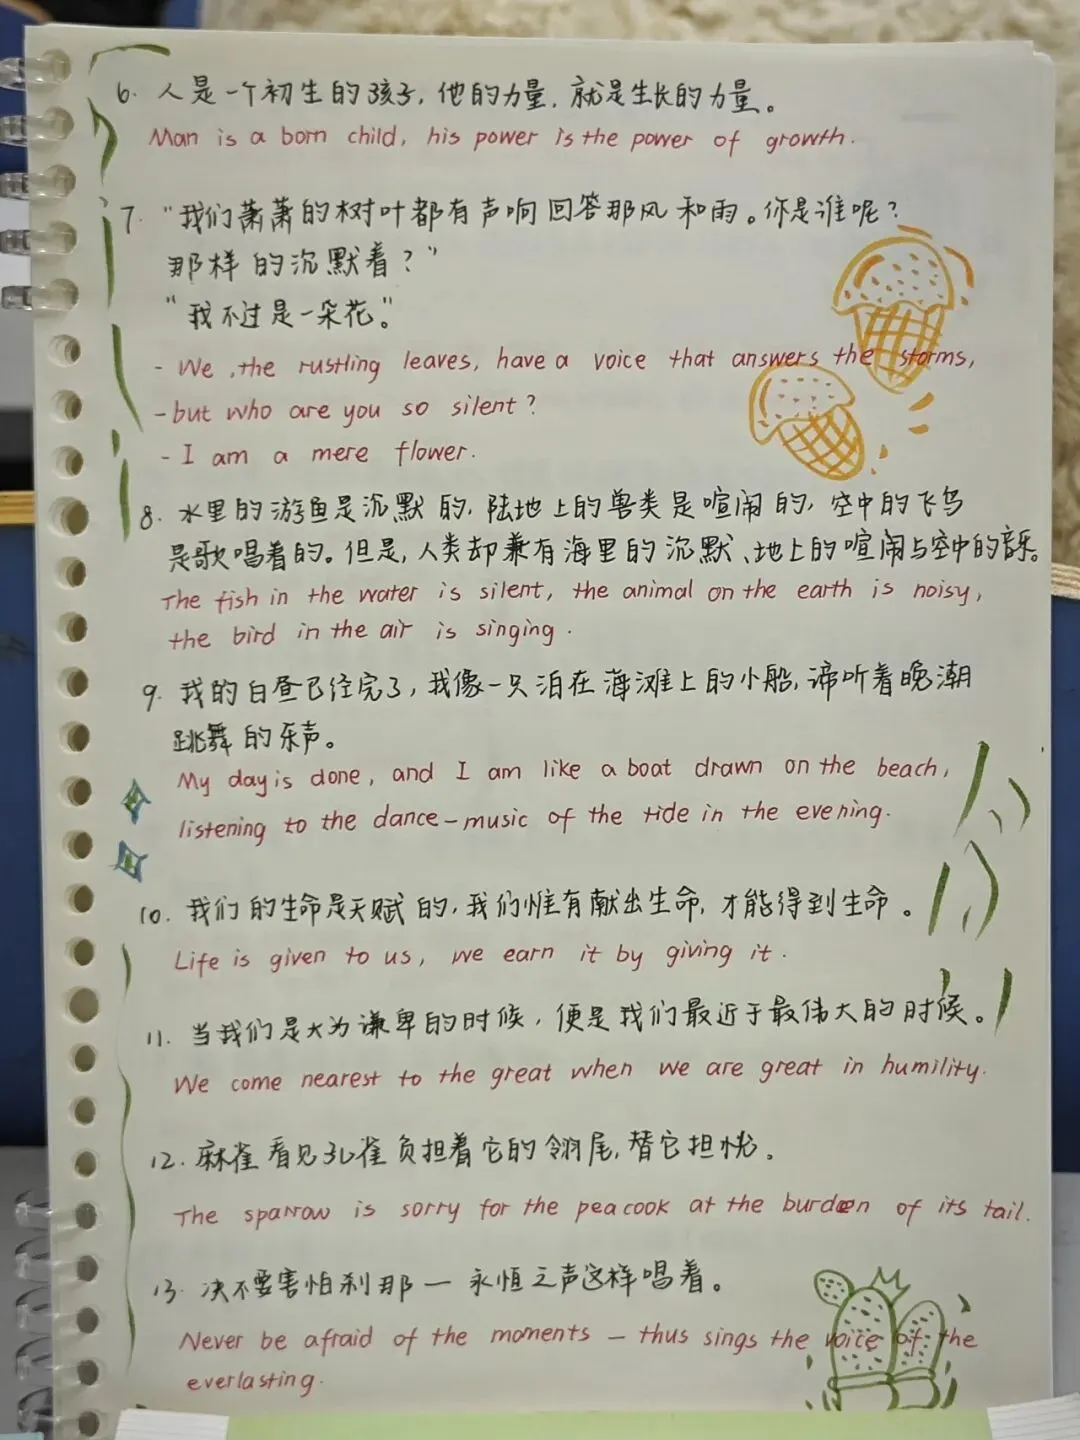 6. 人是一个初生的孩子，他的力量，就是生长的力量。
Man is a born child, his power is the power of growth.
7. “我们萧萧的树叶都有声响回答那风和雨。你是谁呢？
那样的沉默着？”
“我不过是一朵花。”
- We, the rustling leaves, have a voice that answers the storms,
- but who are you so silent?
- I am a mere flower.
8. 水里的游鱼是沉默的，陆地上的兽类是喧闹的，空中的飞鸟
是歌唱着的。但是，人类却兼有海里的沉默、地上的喧闹与空中的音乐。
The fish in the water is silent, the animal on the earth is noisy,
the bird in the air is singing.
9. 我的白昼已经完了，我像一只泊在海滩上的小船，谛听着晚潮
跳舞的乐声。
My day is done, and I am like a boat drawn on the beach,
listening to the dance-music of the tide in the evening.
10. 我们的生命是天赋的，我们惟有献出生命，才能得到生命。
Life is given to us, we earn it by giving it.
11. 当我们是大为谦卑的时候，便是我们最近于最伟大的时候。
We come nearest to the great when we are great in humility.
12. 麻雀看见孔雀负担着它的翎尾，替它担忧。
The sparrow is sorry for the peacook at the burden of its tail.
13. 决不要害怕刹那——永恒之声这样唱着。
Never be afraid of the moments - thus sings the voice of the
everlasting.